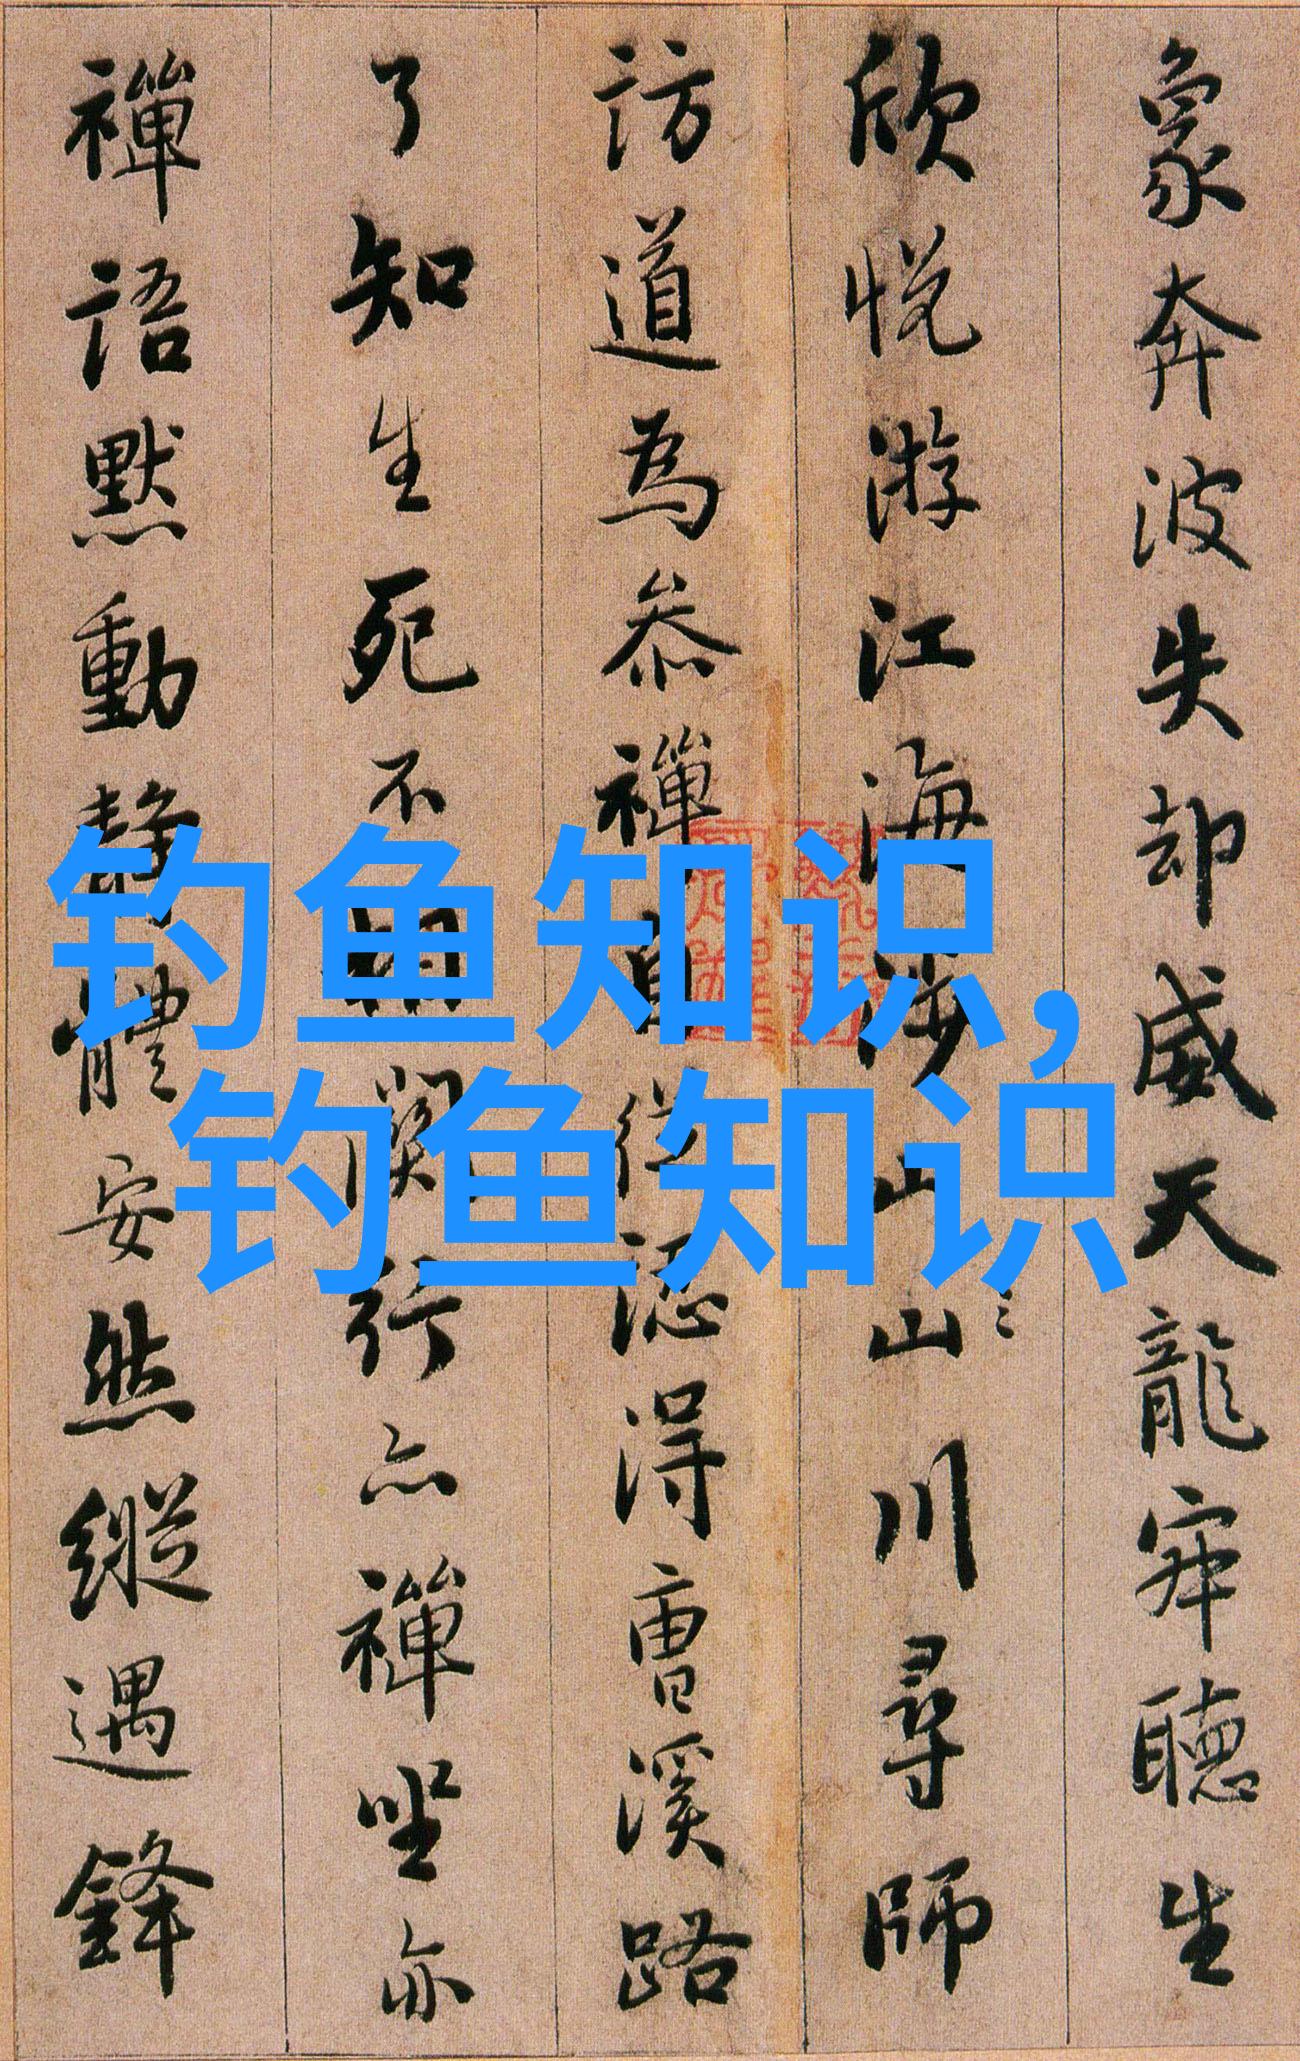 象奔波失却威天龍寂聽生
欣悦游江海涉山山川尋師
訪道為參禪自從認得曹溪路
了知生死不相關行亦禪坐亦
禪語默動靜體安然縱遇鋒
钓鱼知识,
钓鱼知识